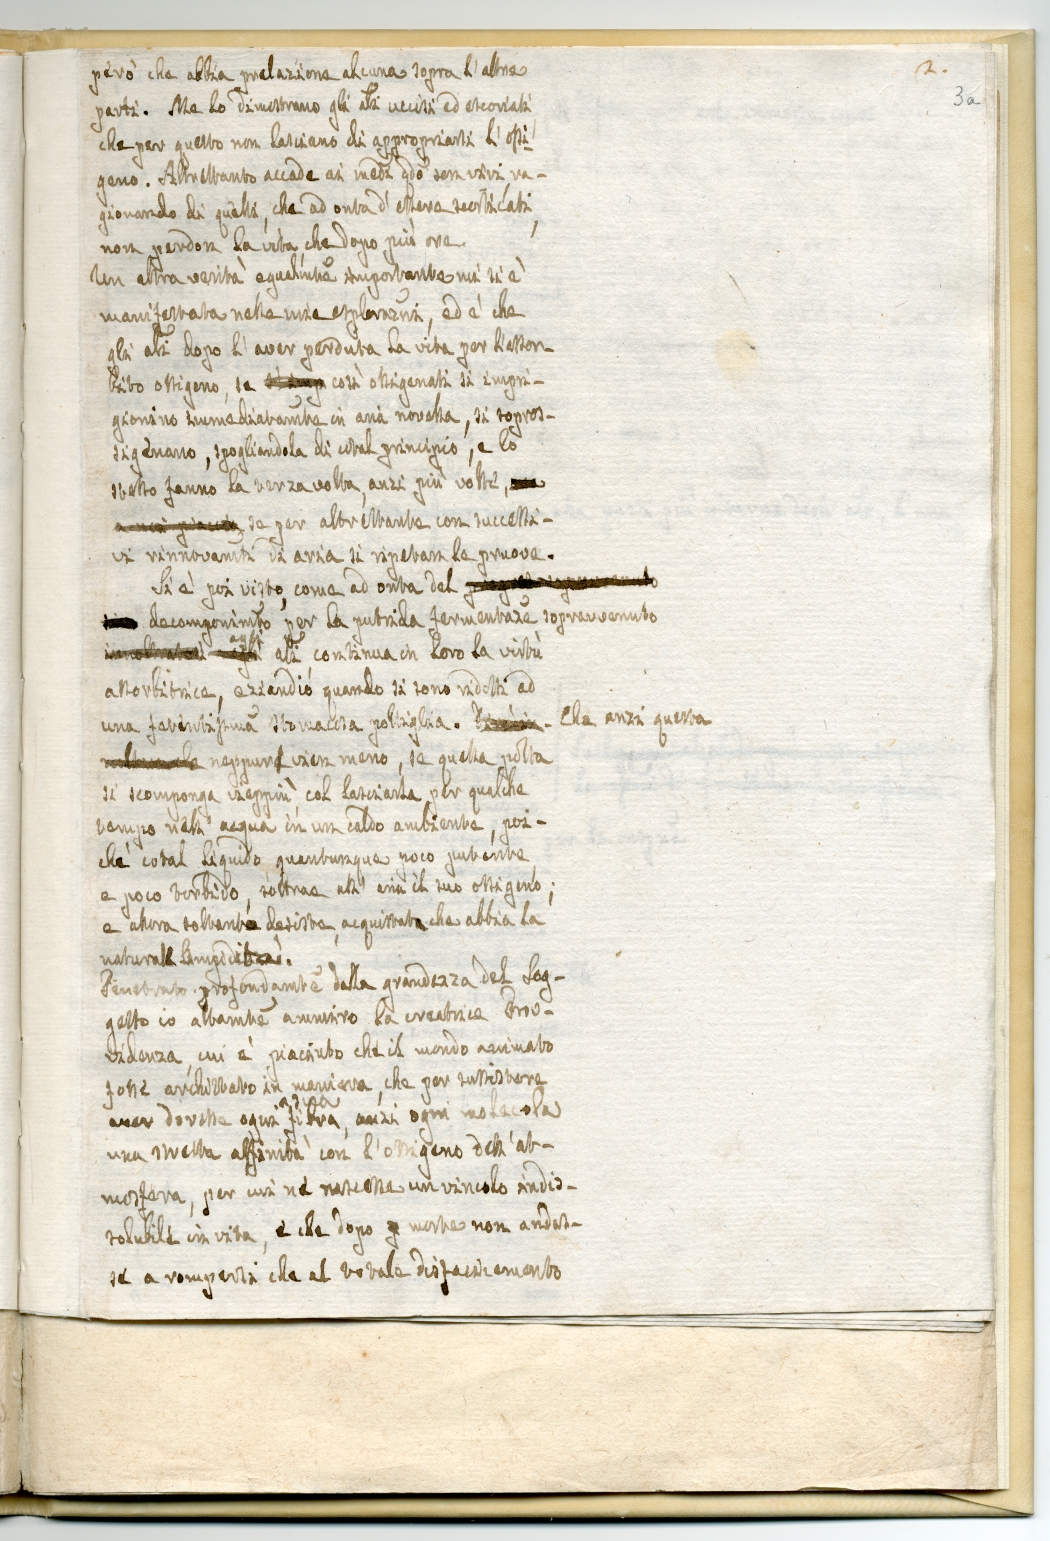 2.
3a
però che abbia prelazione alcuna sopra l'altre
parti. Me lo dimostrano gli ali uccisi ed escoriati
che per questo non lasciano di appropriarsi l'ossi-
geno. Altrettanto accade ai medi qdo son vivi, ra-
gionando di quelli, che ad onta d'essere scorticati,
non perdon la vita che dopo più ore.
Un altra verità egualmte importante mi si è
manifestata nelle mie esplorazni, ed è che
gli ali dopo l'aver perduta la vita per l'assor-
bito ossigeno, se così ossigenati si impri-
gionino immediatamte in aria novella, si sopros-
sigenano, spogliandola di cotal principio, e lo
stesso fanno la terza volta, anzi più volte,
se per altrettante con successi-
vi rinnovamti di aria si ripetan le pruove.
Si è poi visto, come ad onta del
decomponimto per la putrida fermentaze sopravvenuto
agli ali, continua in loro la virtù
assorbitrice, eziandio quando si sono ridotti ad
una fetentissma stomacosa poltiglia. Che anzi questa
neppure vien meno, se quella polta
si scomponga vieppiù col lasciarla per qualche
tempo nell'acqua in un caldo ambiente, poi-
chè cotal liquido quantunque poco putente,
e poco torbido, sottrae all'aria il suo ossigeno;
e allora soltanto desiste, acquistata che abbia la
natural limpidità.
Penetrato profondamte dalla grandezza del Sog-
getto io altamte ammiro la creatrice Prov-
videnza, cui è piaciuto che il mondo animato
fosse architettato in maniera, che per sussistere
aver dovesse ogni fibra, anzi ogni molecola
una stretta affinità con l'ossigeno dell'at-
mosfera, per cui ne nascesse un vincolo indis-
solubile in vita, e che dopo morte non andas-
se a rompersi che al totale disfacimento